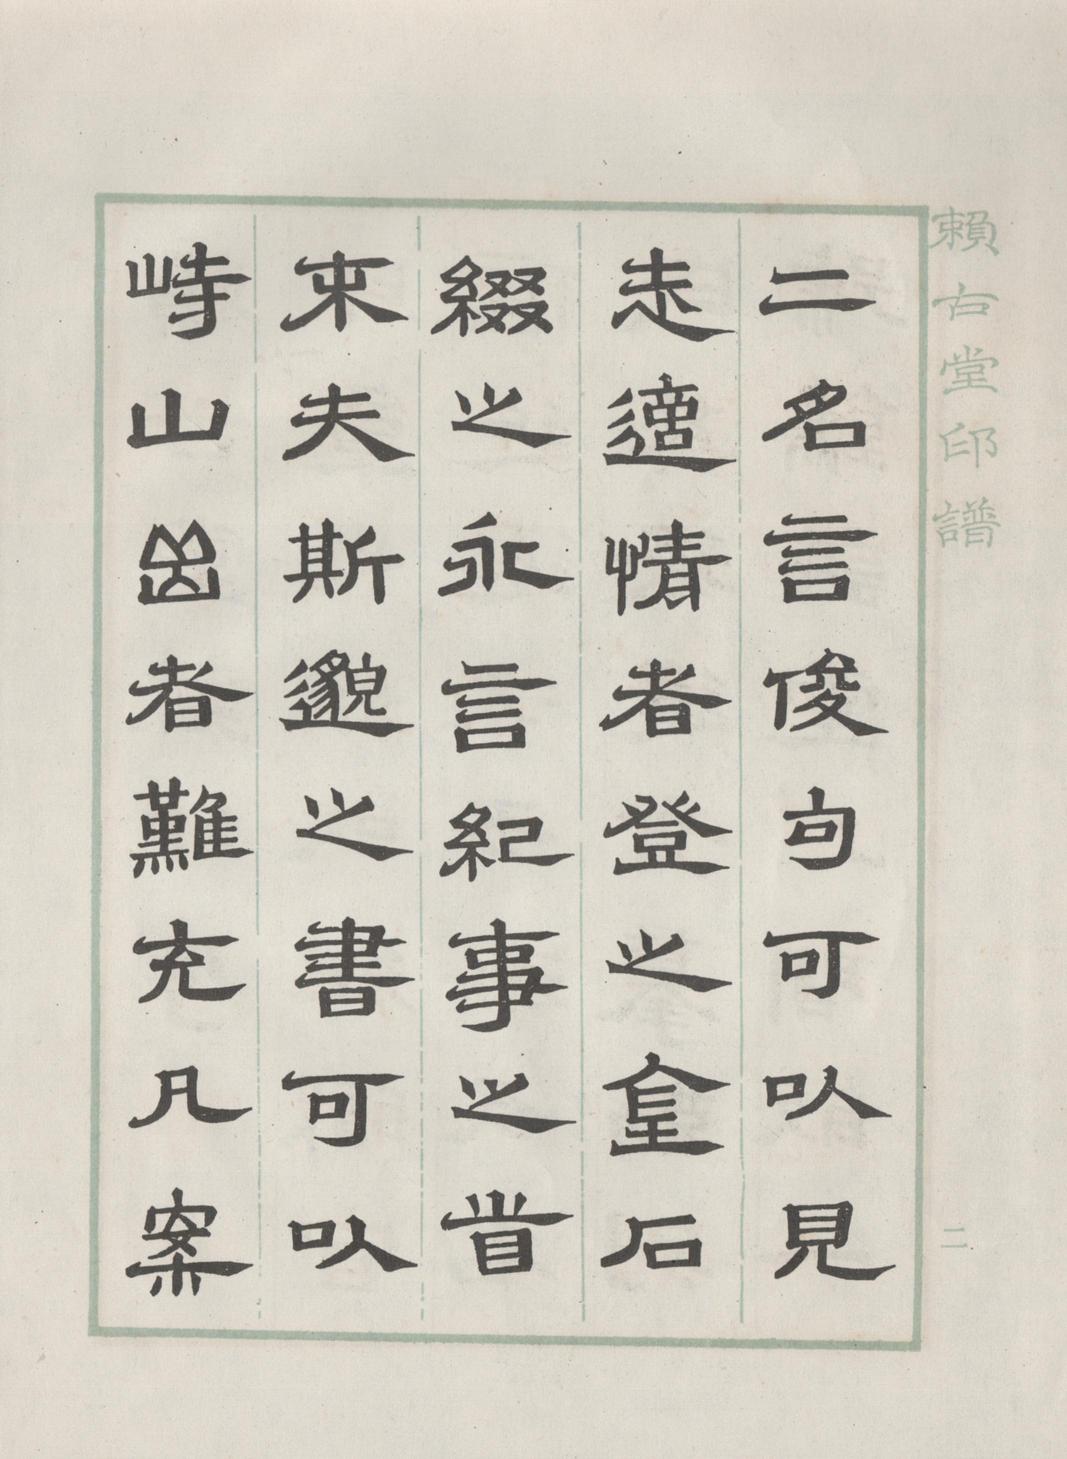 賴古堂印譜
二名言俊句可以見
志適情者登之金石
綴之永言紀事之首
夫斯邈之書可以
峙山岳者難充几案
二